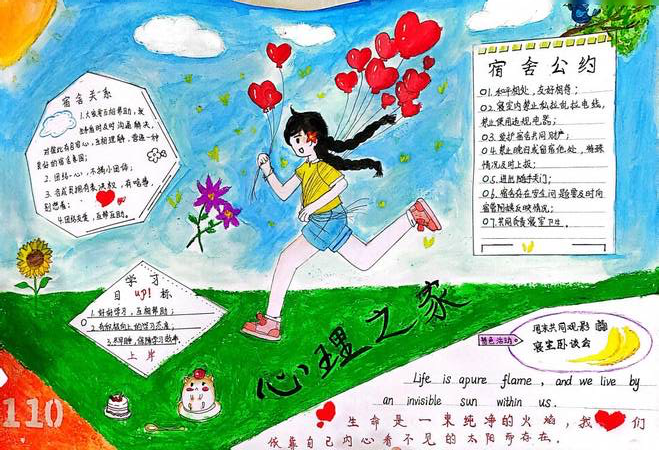 宿舍关系
1.大家要互相帮助,发
生矛盾及时沟通解决,
对彼此有包容心,互相理解,营造一种
良好的宿舍氛围;
2.团结一心,不搞小团体;
3.各成员拥有表决权,有啥事,
别憋着;
4.团结友爱,互帮互助。
宿舍公约
01.和平相处,友好相待;
02.寝室内禁止私拉乱拉电线,
禁止使用违规电器;
03.爱护宿舍共同财产;
04.禁止晚归或留宿他处,特殊
情况及时上报;
05.进出随手关门;
06.宿舍存在安全问题需及时向
宿管阿姨反映情况;
07.共同负责寝室卫生。
学习
目up!标
1.好好学习,互相帮助;
2.有积极向上的学习态度;
3.不早睡,保障学习效率
上岸
心理之家
特色活动
周末共同观影
寝室卧谈会
Life is apure flame, and we live by
an invisible sun within us.
生命是一束纯净的火焰,我们
依靠自己内心看不见的太阳所存在.
110